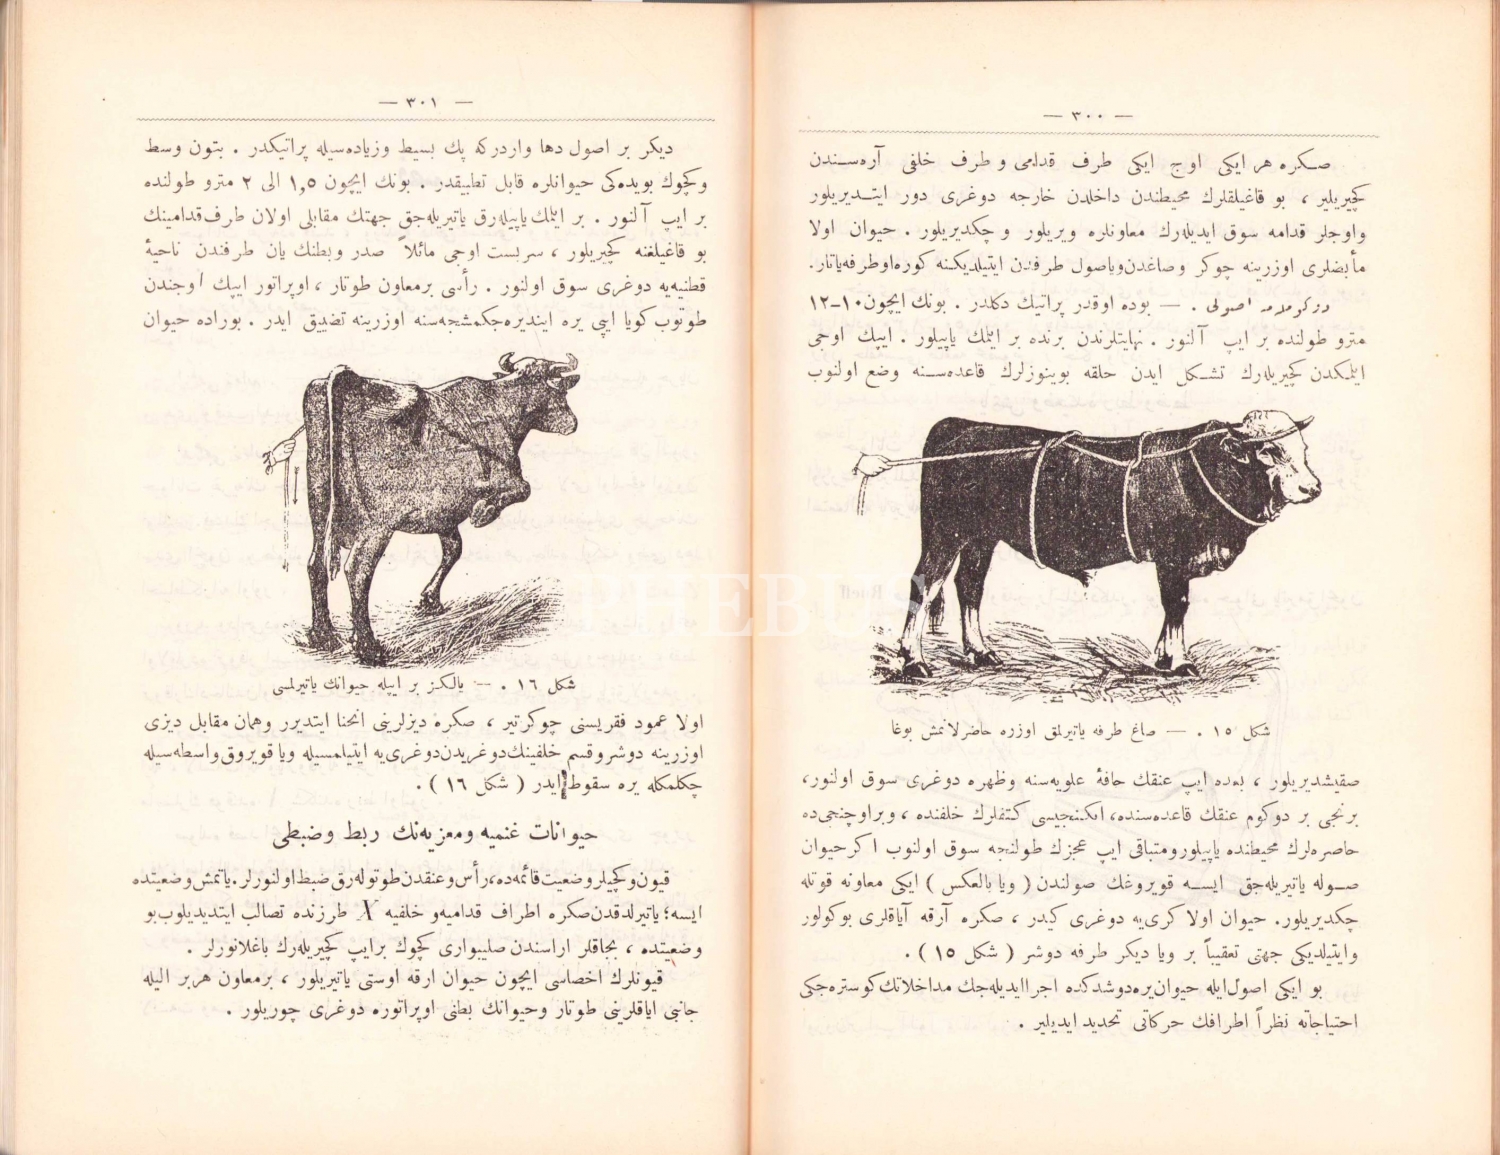 — ٣٠٠ —
صكره هر ايكی اوج ايكی طرف قدامی و طرف خلفی آره‌سندن
كچيريلير ، بو قاغيلقلرك محيطندن داخلدن خارجه دوغری دور ايتديريلور
واوجلر قدامه سوق ايديله‌رك معاونلره ويريلور و چكديريلور . حيوان اولا
مأبضلری اوزرينه چوكر وصاغدن وياصول طرفدن ايتيلديكنه كوره اوطرفه ياتار.
اصولی . — بوده اوقدر پراتيك دكلدر . بونك ايچون ١٠–١٢
مترو طولنده بر ايپ آلنور . نهايتلرندن برنده بر ايلمك ياپيلور . ايپك اوجی
ايلمكدن كچيريله‌رك تشكل ايدن حلقه بوينوزلرك قاعده‌سنه وضع اولنوب
شكل ١٥ . — صاغ طرفه ياتيرلمق اوزره حاضرلانمش بوغا
صقيشديريلور ، بعده ايپ عنقك حافۀ علويه‌سنه وظهره دوغری سوق اولنور،
برنجی بر دوكوم عنقك قاعده‌سنده، ايكنجيسی كتفلرك خلفنده ، وبراوچنجی‌ده
خاصره‌لرك محيطنده ياپيلور ومتباقی ايپ عجزك طولنجه سوق اولنوب اكر حيوان
صوله ياتيريله‌جق ايسه قويروغك صولندن ( ويا بالعكس ) ايكی معاونه قوتله
چكديريلور. حيوان اولا كری‌يه دوغری كيدر ، صكره آرقه آياقلری بوكولور
وايتيلديكی جهتی تعقيباً بر ويا ديكر طرفه دوشر ( شكل ١٥ ) .
بو ايكی اصول ايله حيوان يره دوشدكده اجرا ايديله‌جك مداخلاتك كوستره‌جكی
احتياجاته نظراً اطرافك حركاتی تحديد ايديلير .
— ٣٠١ —
ديكر بر اصول دها واردركه پك بسيط وزياده‌سيله پراتيكدر . بتون وسط
وكچوك بويده‌كی حيوانلره قابل تطبيقدر . بونك ايچون ١,٥ الی ٢ مترو طولنده
بر ايپ آلنور . بر ايلمك ياپيله‌رق ياتيريله‌جق جهتك مقابلی اولان طرف قدامينك
بو قاغيلغنه كچيريلور ، سربست اوجی مائلاً صدر وبطنك يان طرفندن ناحيۀ
قطنيه‌يه دوغری سوق اولنور . رأسی برمعاون طوتار ، اوپراتور ايپك اوجندن
طوتوب كويا ايپی يره اينديره‌جكمشجه‌سنه اوزرينه تضييق ايدر . بوراده حيوان
شكل ١٦ . — يالكز بر ايپله حيوانك ياتيرلمسی
اولا عمود فقريسنی چوكرتير ، صكره ديزلرينی انحنا ايتديرر وهمان مقابل ديزی
اوزرينه دوشر وقسم خلفينك دوغريدن دوغری‌يه ايتيلمسيله ويا قويروق واسطه‌سيله
چكلمكله يره سقوط ايدر ( شكل ١٦ ) .
حيوانات غنميه ومعزيه‌نك ربط وضبطی
قيون وكچيلر وضعيت قائمه‌ده، رأس وعنقدن طوتوله‌رق ضبط اولنورلر. ياتمش وضعيتده
ايسه؛ ياتيرلدقدن صكره اطراف قداميه و خلفيه X طرزنده تصالب ايتديديلوب بو
وضعيتده ، بجاقلر اراسندن صليبواری كچوك برايپ كچيريله‌رك باغلانورلر .
قيونلرك اخصاسی ايچون حيوان ارقه اوستی ياتيريلور ، برمعاون هربر اليله
جانبی اياقلرينی طوتار وحيوانك بطنی اوپراتوره دوغری چوريلور .
PHEBUS